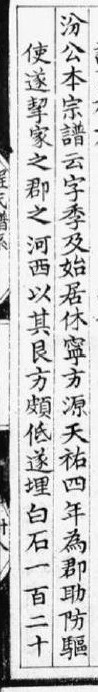 汾公本宗譜云字季及始居休寧方源天祐四年為郡助防驅
使遂挈家之郡之河西以其艮方頗低遂埋白石一百二十